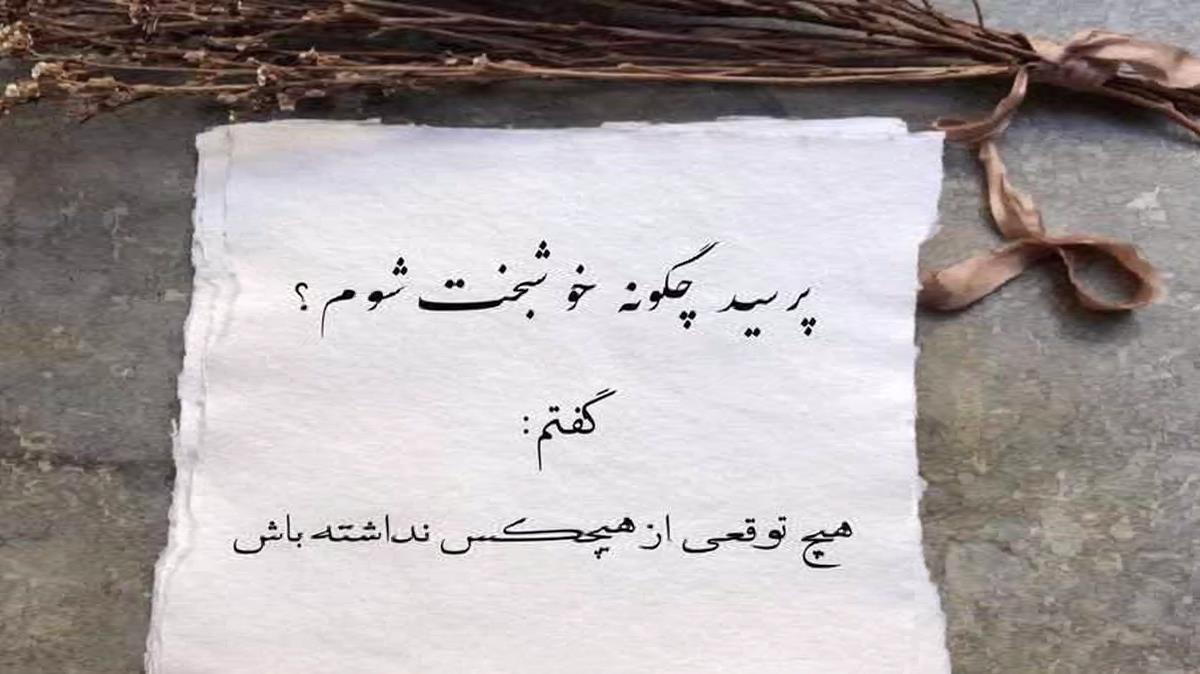 پرسید چگونه خوشبخت شوم ؟
گفتم:
هیچ توقعی از هیچکس نداشته باش